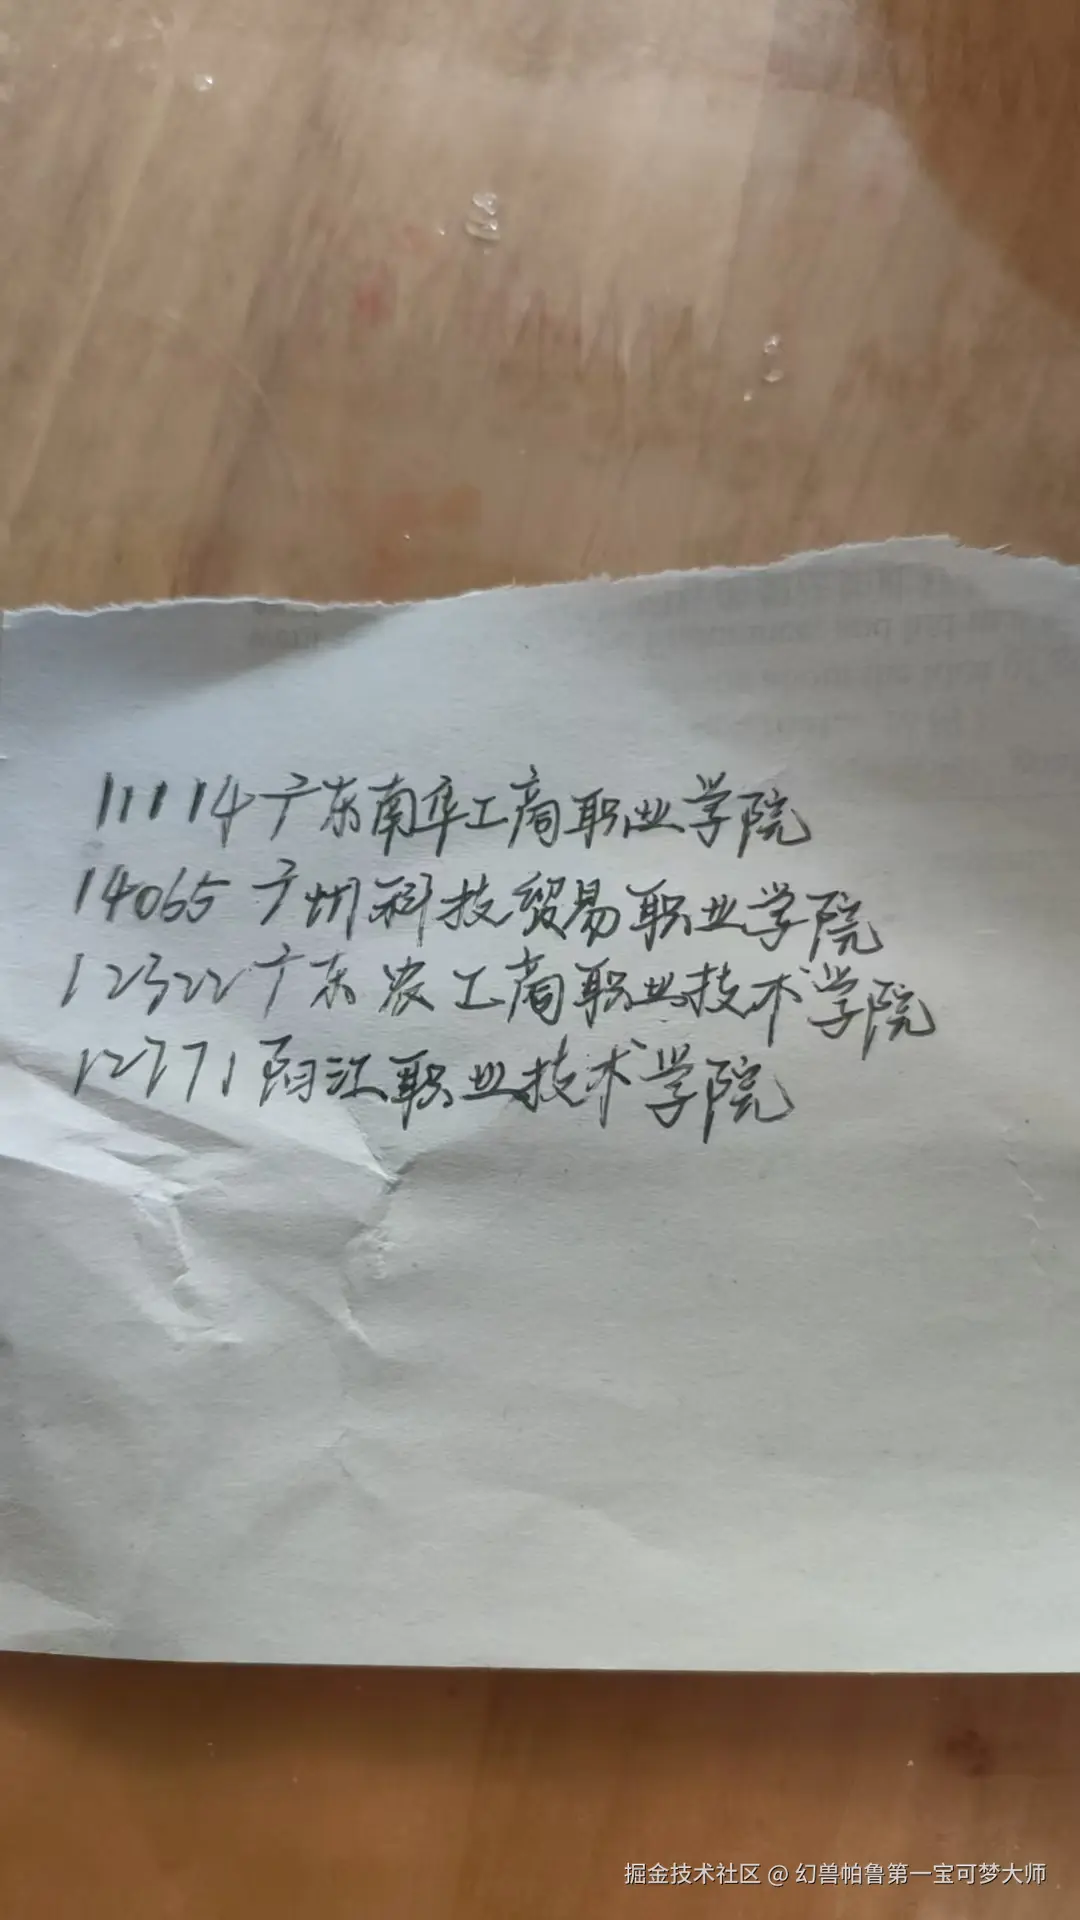 11114广东南华工商职业学院
14065广州科技贸易职业学院
12322广东农工商职业技术学院
12771阳江职业技术学院
掘金技术社区 @ 幻兽帕鲁第一宝可梦大师